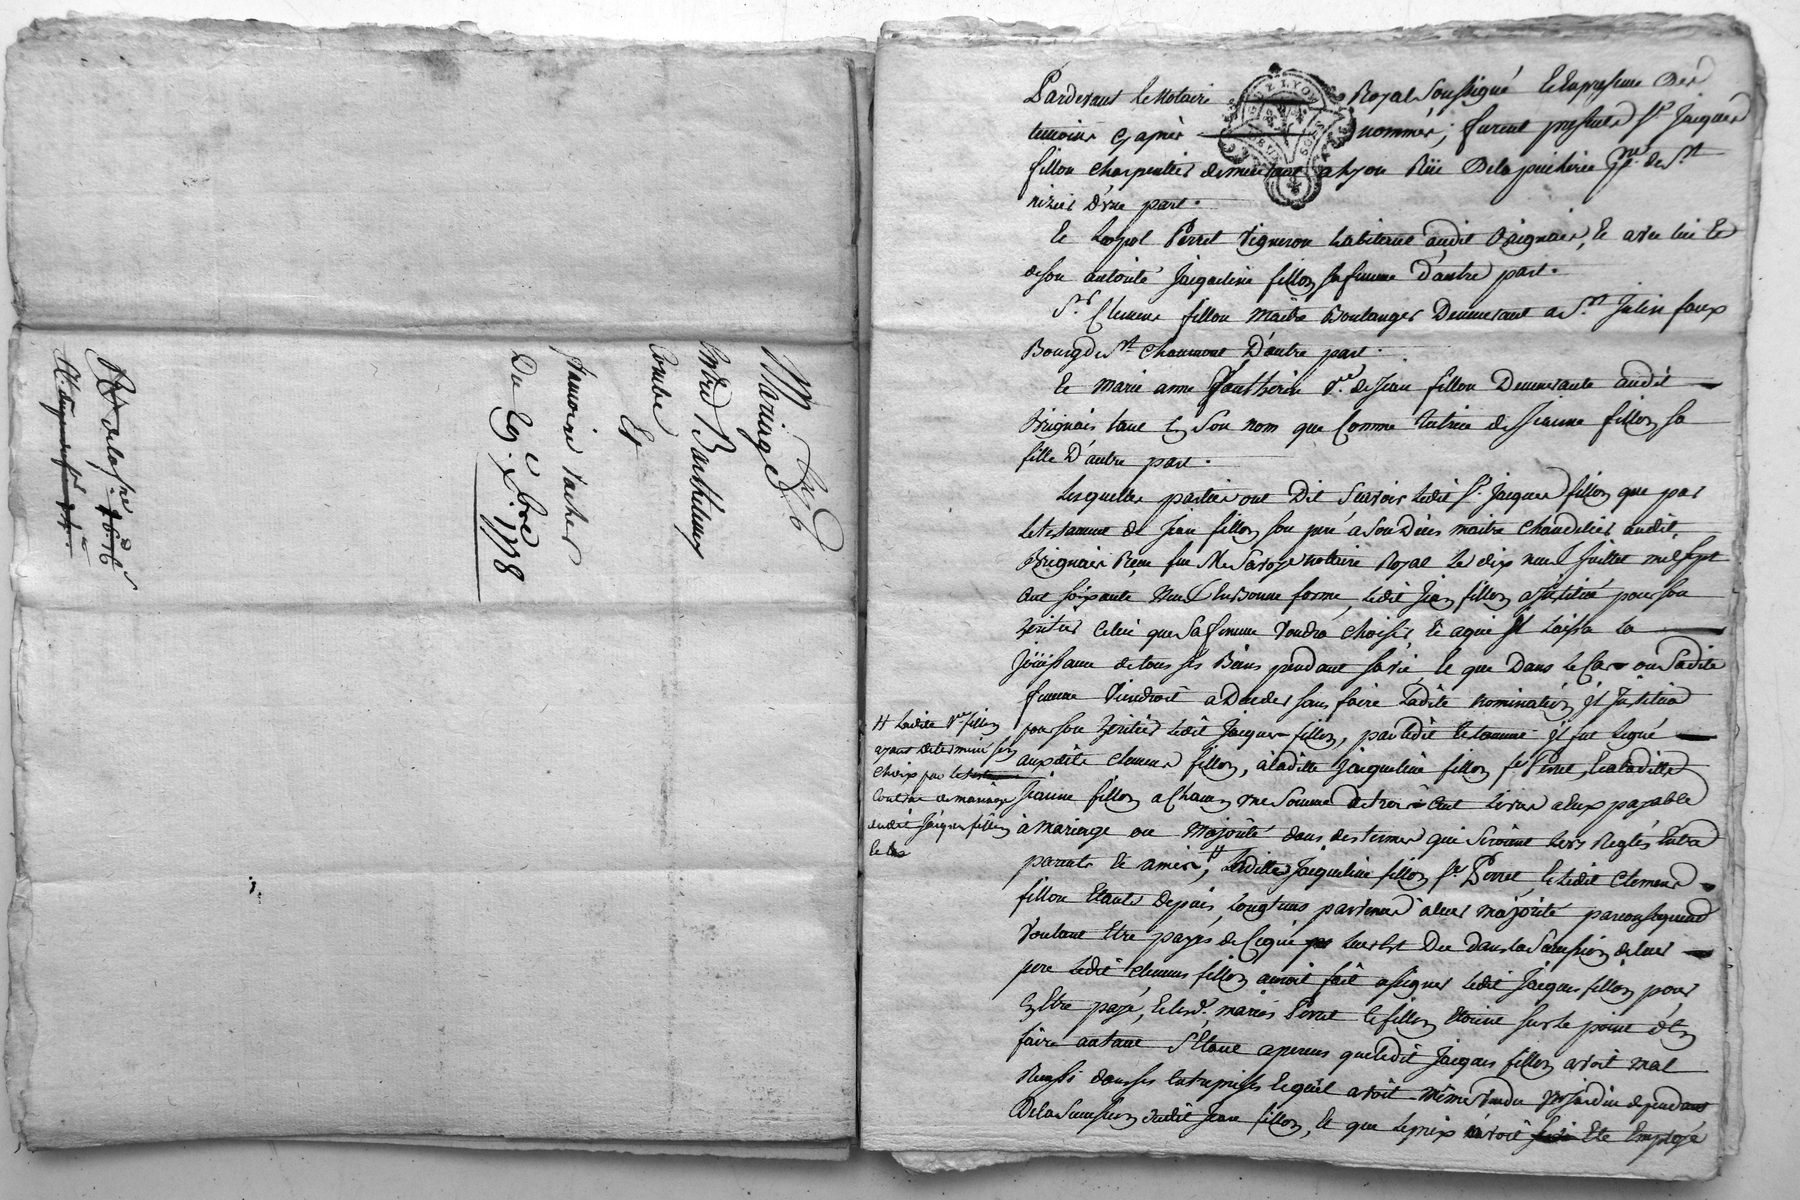 Mariage
André Barthelemy
Combe
Et
Du 29 e 8bre 1778
Pardevant le Notaire Royal Soussigné et En presence Des
temoins cy après nommés, furent presents Sr Jacques
fillon charpentier demeurant a Lyon Rüe Dela pecherie psse de St
nizier d'une part.
Et Leopol Perret Vigneron habitant audit Brignais, Et avec lui Et
de son autorité Jacqueline fillon sa femme D'autre part.
Sr Clement fillon Maitre Boulanger Demeurant a St Julien faux
Bourg de St Chaumont D'autre part.
Et marie anne Vve de Jean fillon Demeurante audit
Brignais tant En Son nom que Comme tutrice de Jeanne fillon sa
fille D'autre part.
Lesquelles parties ont Dit Scavoir Ledit Sr Jacques fillon que par
testament de Jean fillon son pere a Son Deces maitre Chandelier audit
Brignais Reçu par Me notaire Royal Le dix neuf Juillet mil Sept
Cent soixante neuf En Bonne forme, Ledit Jean fillon a Institué pour son
heritier Celui que Sa femme Voudra choisir Et a qui Il Laissa La
Joüissance de tous ses Biens pendant sa vie, Et que Dans le Cas ou Sadite
femme Viendroit a Deceder sans faire Ladite nomination Il Institua
pour son heritier Ledit Jacques fillon, par Ledit testament il fut Legué
auxdits Clement fillon, a ladite Jacqueline fillon fe Perret, Et a ladite
Jeanne fillon a Chacun une Somme de trois Cent Livres a Eux payable
à mariage ou Majorité dans des termes qui Seroient Lors Reglés Entre
parents Et amis, # Ladite Jacqueline fillon fe Perret, Et Ledit Clement
fillon Etants Depuis Longtems parvenus a leur majorité par consequent
Voulant Etre payés de Ce qui Leur Est Du Dans la Succession de leur
pere Ledit Clement fillon auroit fait assigner Ledit Jacques fillon pour
En Etre payé, Et Lesd. mariés Perret Et fillon Etoient sur le point d'En
faire autant S'Etant apercus que Ledit Jacques fillon avoit mal
Reussi dans ses Entreprises Et qu'il avoit même Vendu un Jardin dependant
De la Succession dudit Jean fillon, Et que le prix avoit Ete Employé
# Ladite Vve fillon
ayant determiné son
Choix par le
Contrat de mariage
dudit Jacques fillon